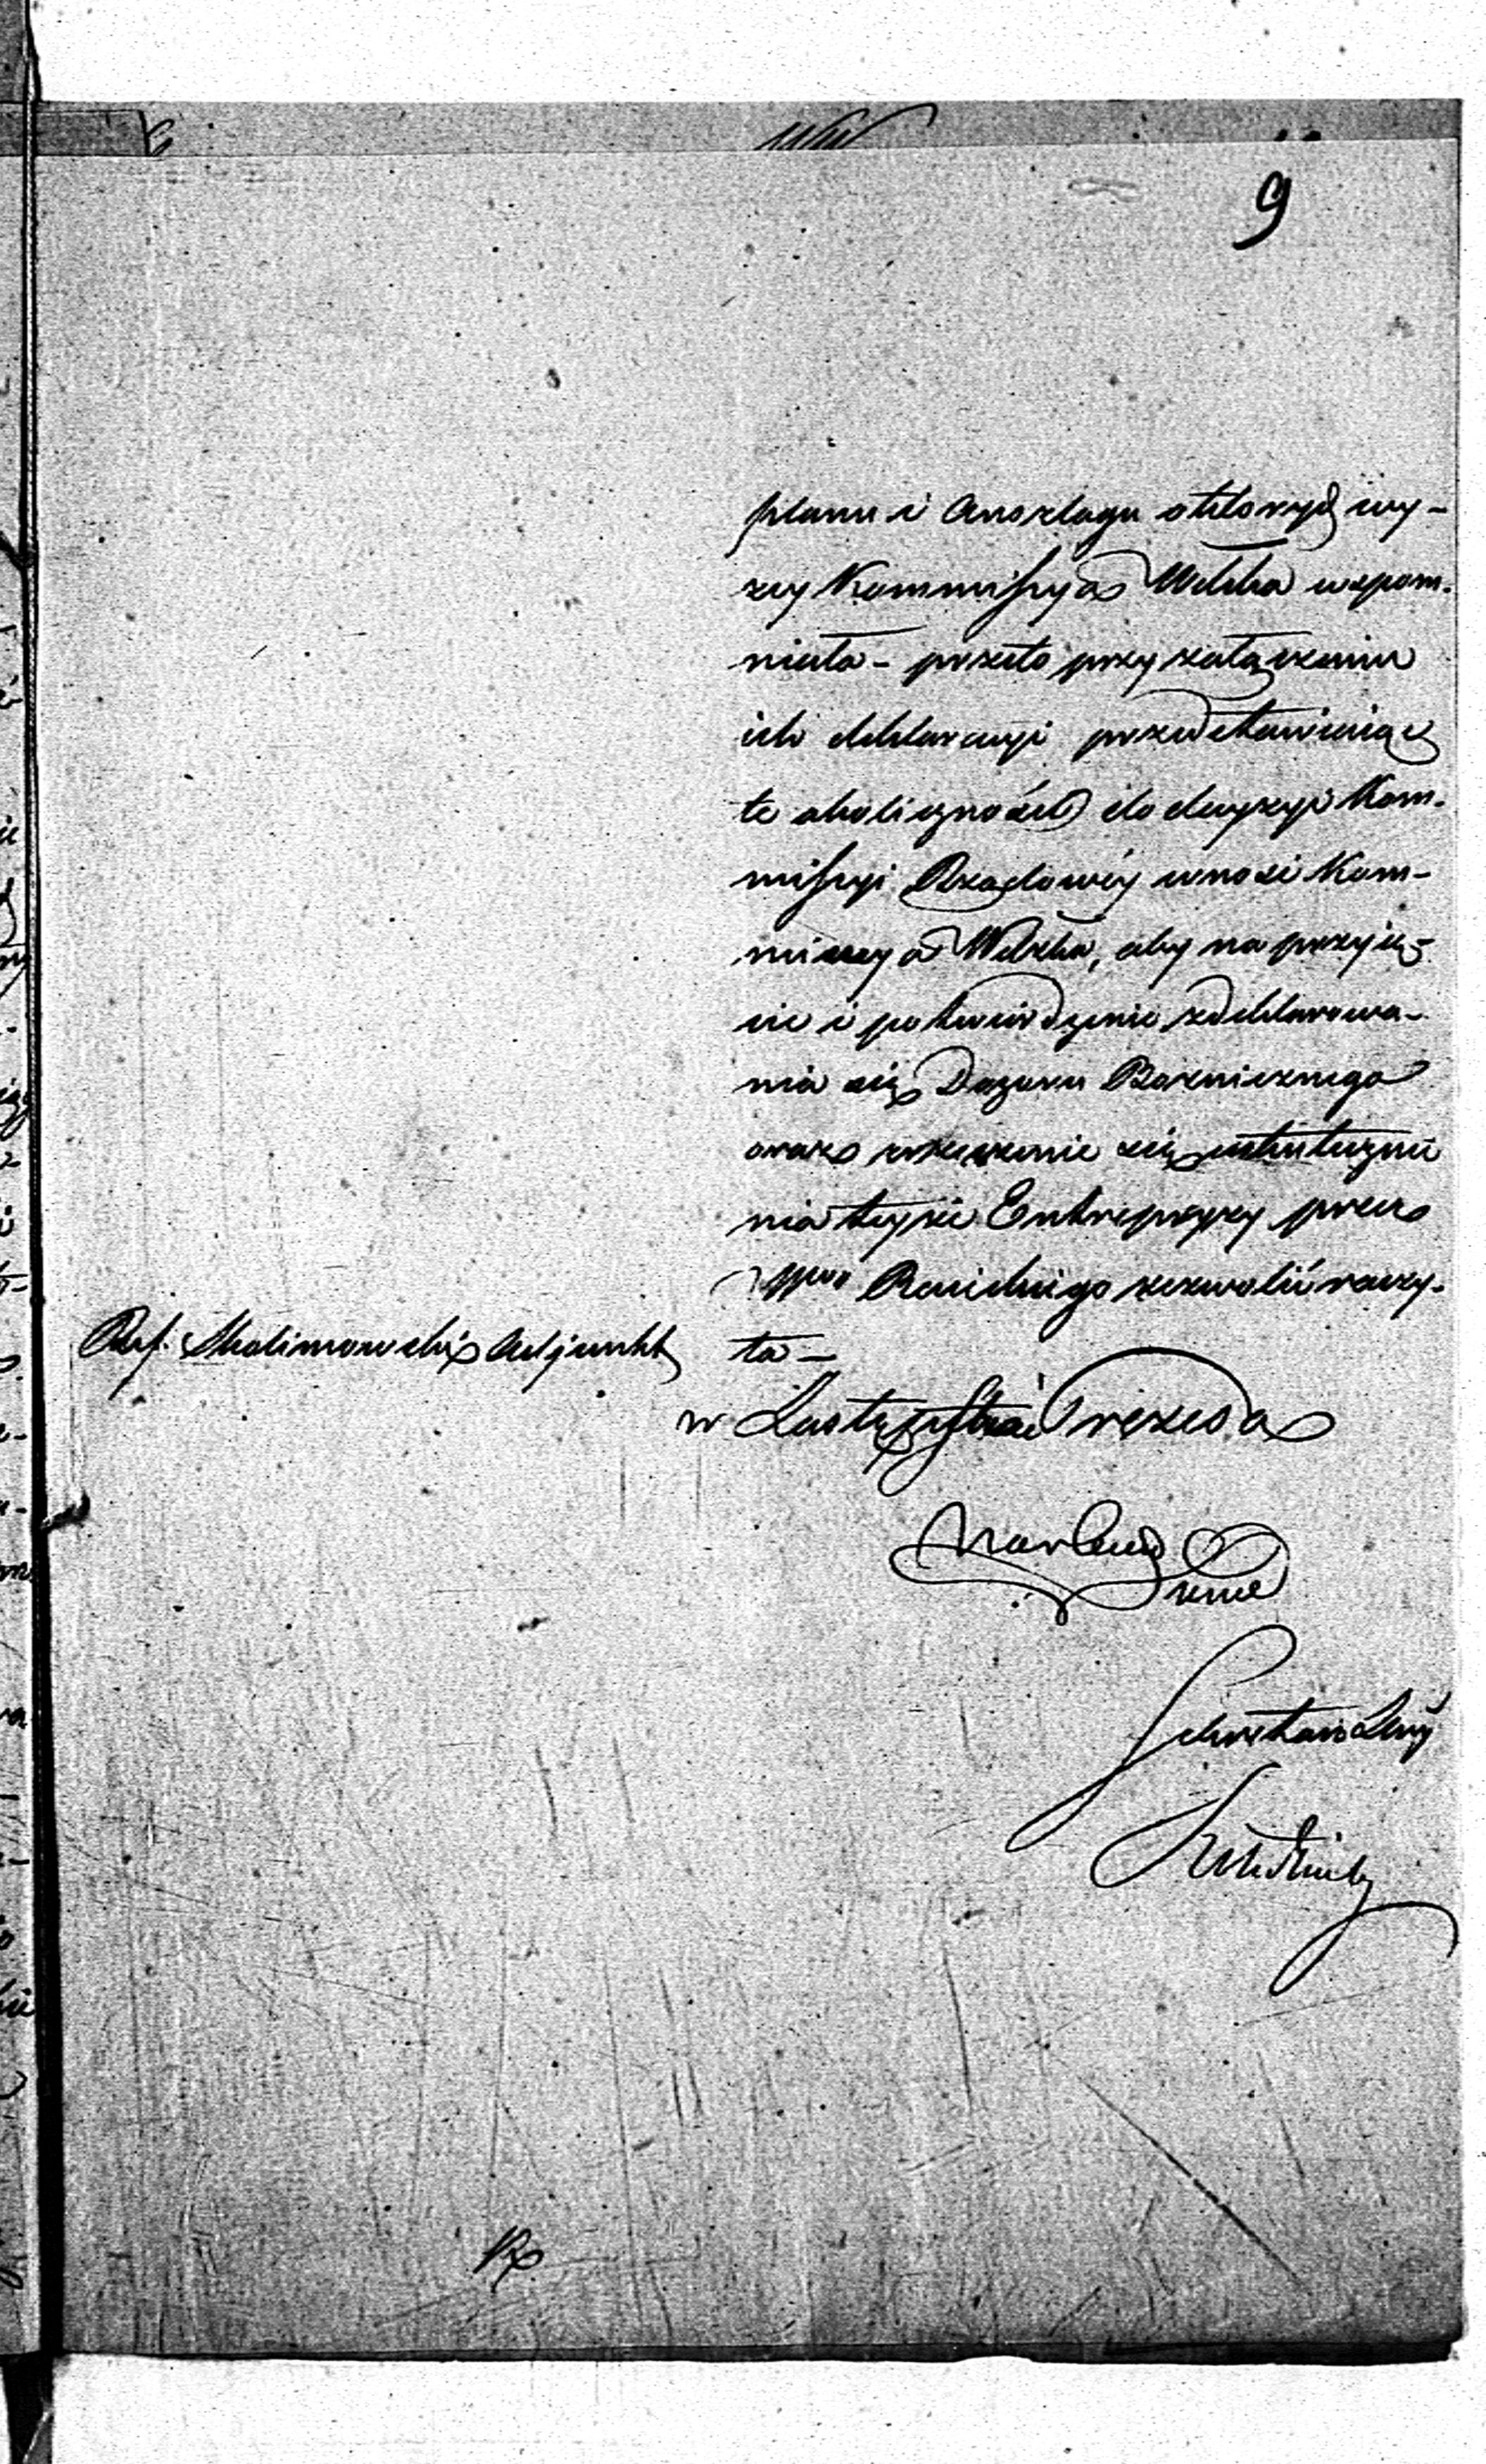 9
planu i Anszlagu o których wy-
żey Kommissya Wdzka wspom-
niała - przeto przy załączeniu
ich deklaracyi przedstawiaiąc
te okoliczność do decyzyi Kom-
missyi Rządowéy wnosi Kom-
missya Wdzka, aby na przyię-
cie i potwierdzenie zdeklarowa-
nia się Dozoru Bożniczego
oraz zrzeczenie się
nia teyże Entrepryzy przez
zezwolić raczy-
ta -
Ref. Skalimowski Adjunkt
w Zastępstwie Prezesa
Sekretarz Jlny